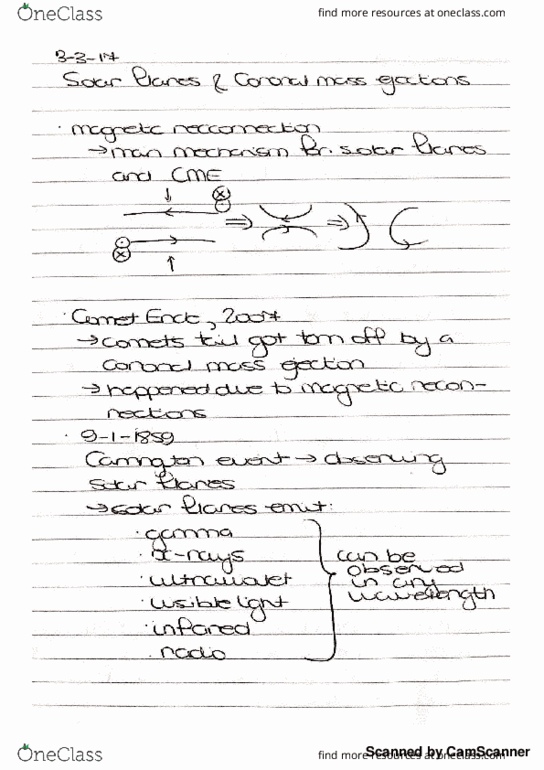 OneClass
find more resources at oneclass.com
3-3-17
Solar flares & Coronal mass ejections
· magnetic reconnection
→ main mechanism for solar flares
and CME
⇒ ⇒
· Comet Enck, 2007
→ comets tail got torn off by a
coronal mass ejection
→ happened due to magnetic recon-
nections
· 9-1-1859
Carrington event → observing
solar flares
→ solar flares emit:
· gamma
· x-rays
· ultraviolet
· visible light
· infared
· radio
can be
observed
in any
wavelength
OneClass
find more resources at oneclass.com
Scanned by CamScanner